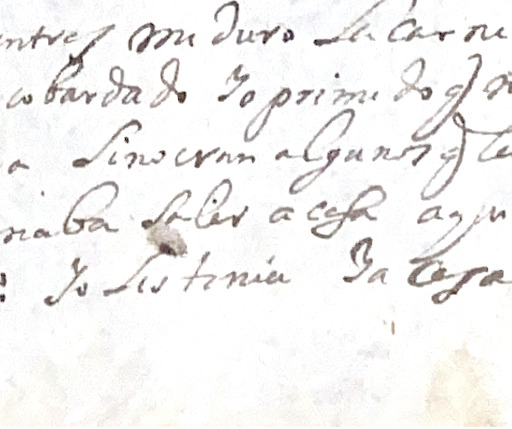 entres me duro la carne
cobardado Yo prime do q) n
a sino eran algunos q) le
naba salir a cesa aqu
Yo les tenia Ya cesa